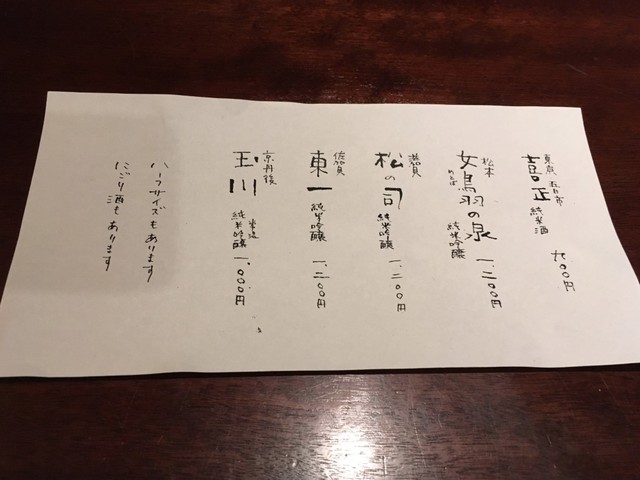 東京 五日市
喜正 純米酒 九〇〇円
松本
女鳥羽の泉 純米吟醸 一、二〇〇円
めとば
滋賀
松の司 純米吟醸 一、二〇〇円
佐賀
東一 純米吟醸 一、二〇〇円
京丹後
玉川 純米吟醸 一、〇〇〇円
ハーフサイズもあります
にごり酒もあります